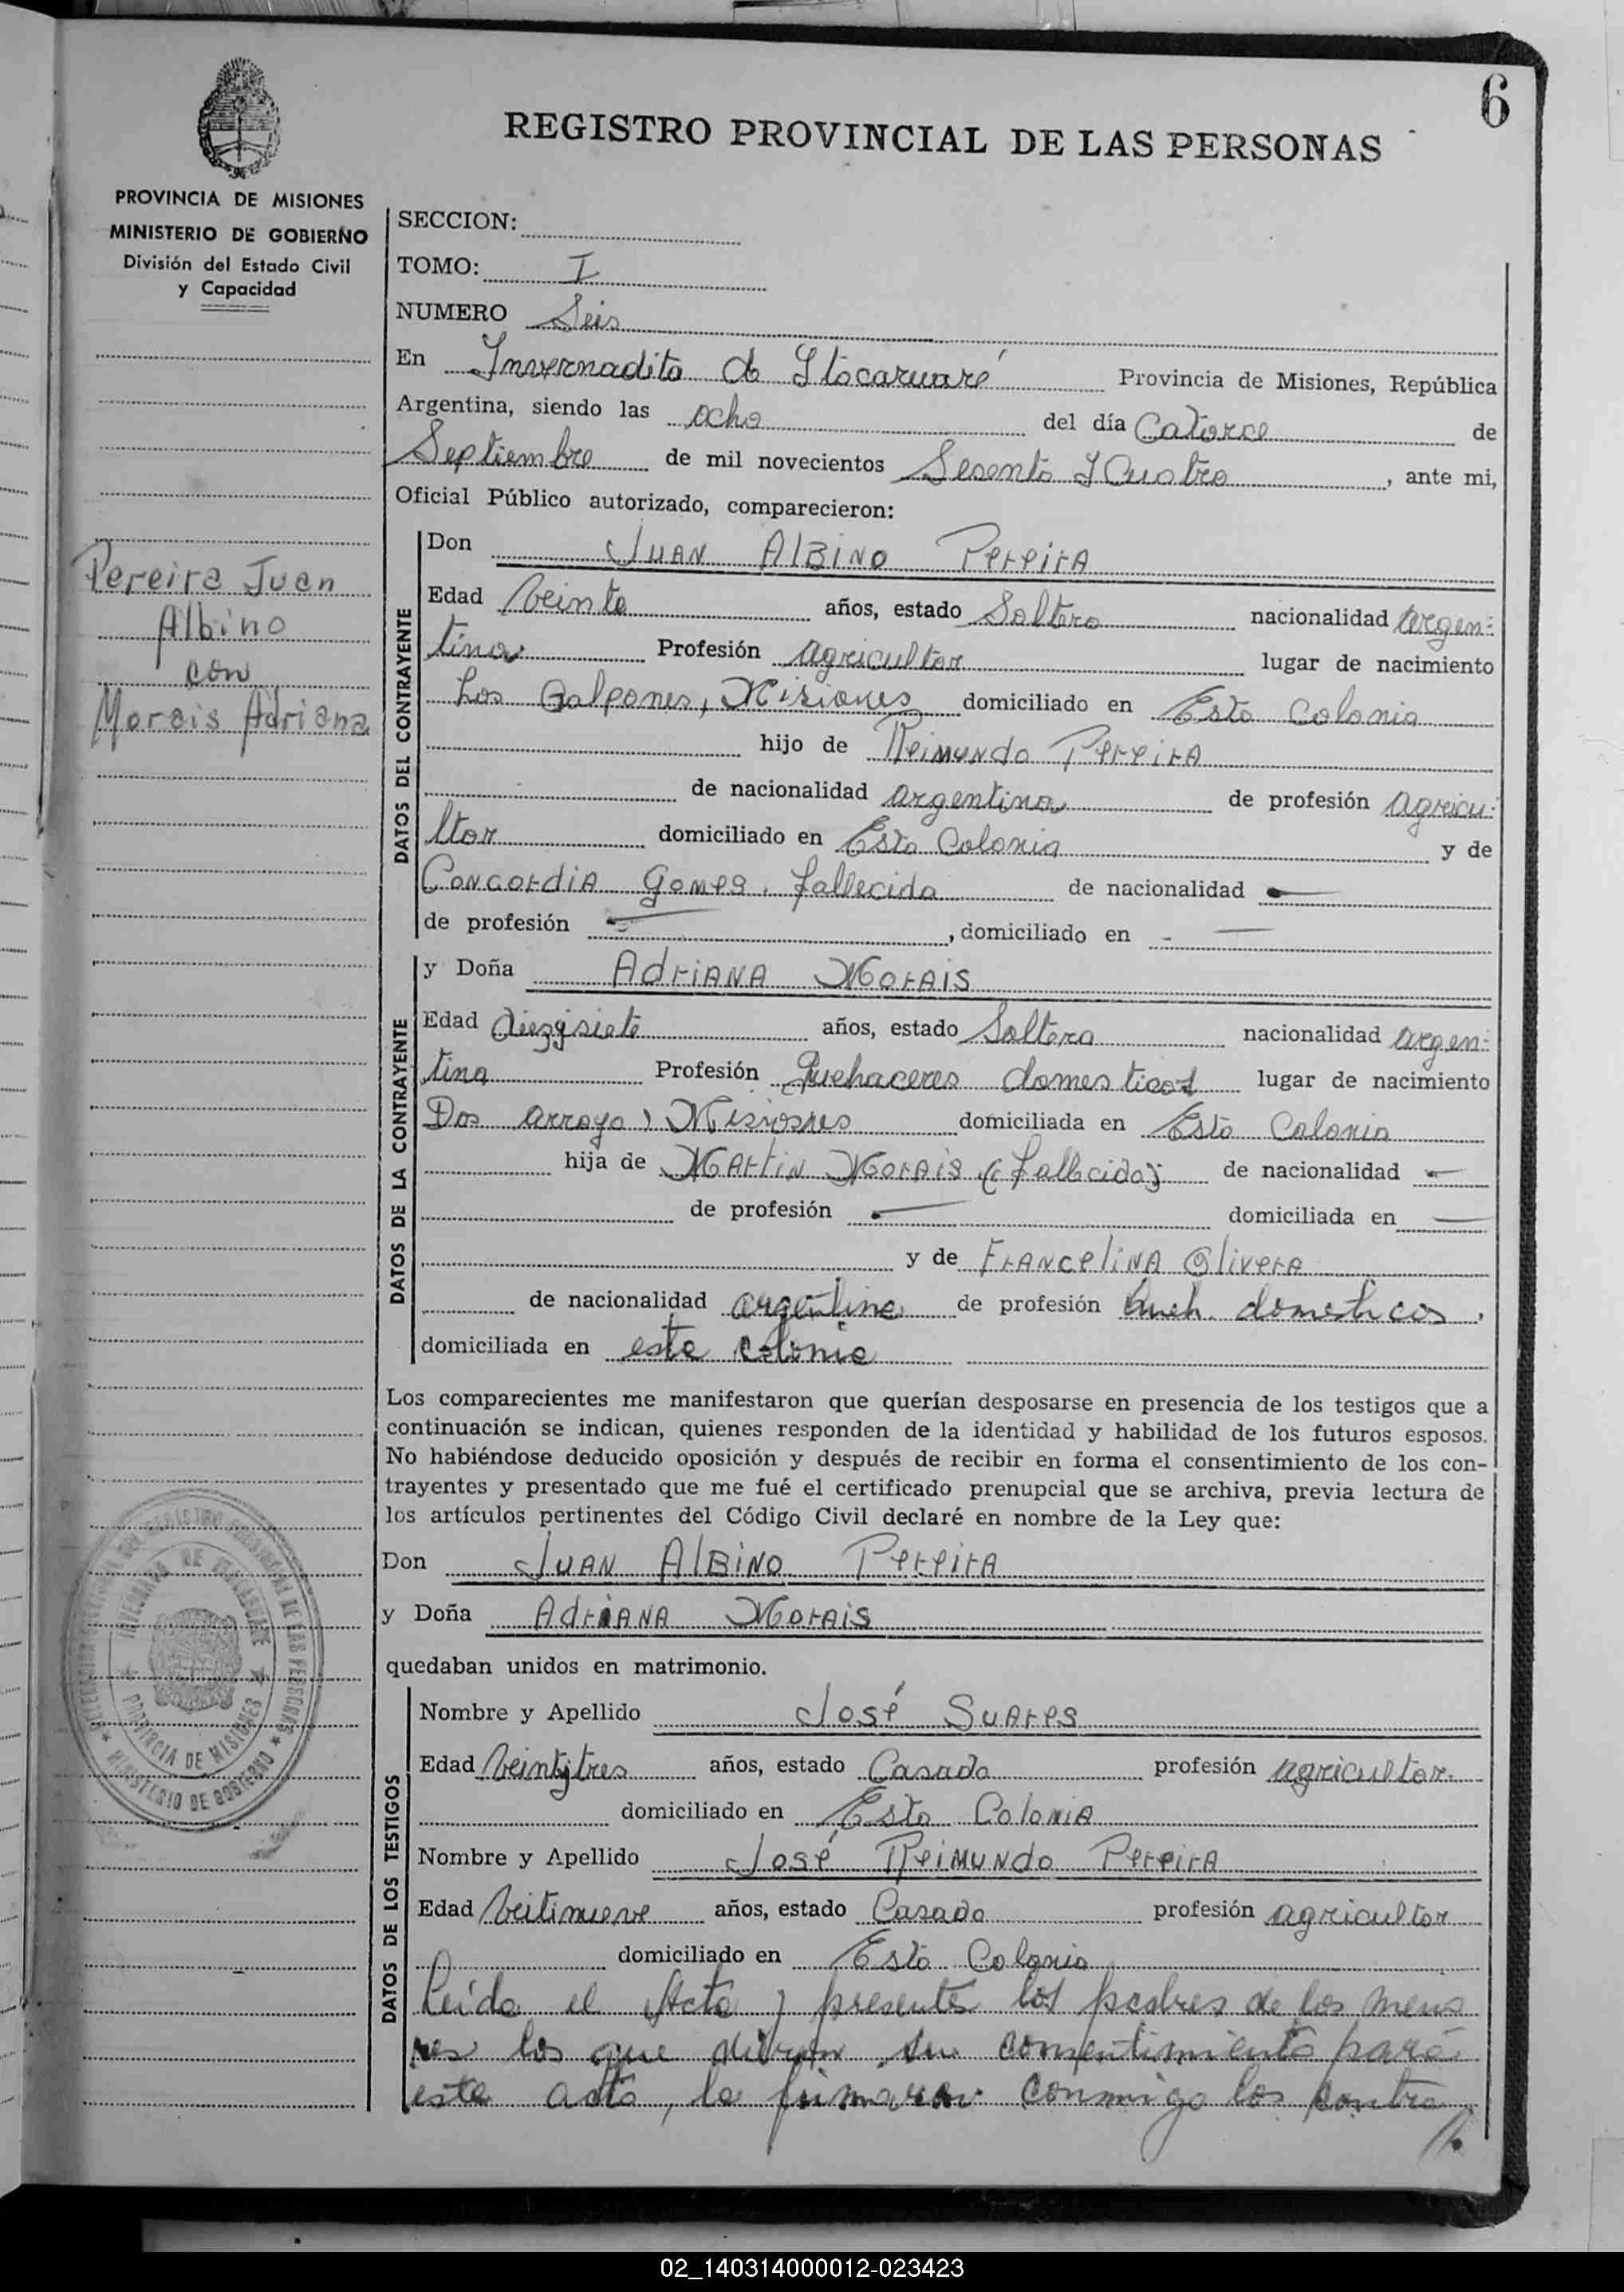 6
REGISTRO PROVINCIAL DE LAS PERSONAS
PROVINCIA DE MISIONES
MINISTERIO DE GOBIERNO
División del Estado Civil
y Capacidad
Pereira Juan
Albino
con
Morais Adriana
SECCION:
TOMO: I
NUMERO Seis
En Invernadita de Itacaruaré Provincia de Misiones, República
Argentina, siendo las ocho del día Catorce de
Septiembre de mil novecientos Sesenta y Cuatro, ante mi,
Oficial Público autorizado, comparecieron:
DATOS DEL CONTRAYENTE
Don JUAN AlBiNO PereirA
Edad Veinte años, estado Soltero nacionalidad argen-
tina Profesión agricultor lugar de nacimiento
Los Galpones, Misiones domiciliado en Esta Colonia
hijo de Reimundo PereirA
de nacionalidad argentina de profesión agricu-
ltor domiciliado en Esta Colonia y de
Concordia Gomes, fallecida de nacionalidad —
de profesión —, domiciliado en - —
DATOS DE LA CONTRAYENTE
y Doña AdriANA MorAis
Edad diezysiete años, estado Soltera nacionalidad argen-
tina Profesión Quehaceres domesticos lugar de nacimiento
Dos arroyo, Misiones domiciliada en Esta Colonia
hija de Martin Morais (fallecido) de nacionalidad —
de profesión — domiciliada en —
y de FrANcelinA OliverA
de nacionalidad argentina de profesión Queh. domesticos,
domiciliada en esta colonia
Los comparecientes me manifestaron que querían desposarse en presencia de los testigos que a
continuación se indican, quienes responden de la identidad y habilidad de los futuros esposos.
No habiéndose deducido oposición y después de recibir en forma el consentimiento de los con-
trayentes y presentado que me fué el certificado prenupcial que se archiva, previa lectura de
los artículos pertinentes del Código Civil declaré en nombre de la Ley que:
Don JUAN AlBiNO PereirA
y Doña AdriANA MorAis
quedaban unidos en matrimonio.
DATOS DE LOS TESTIGOS
Nombre y Apellido José Suares
Edad Veintytres años, estado Casado profesión agricultor.
domiciliado en Esta Colonia
Nombre y Apellido José Reimundo PereirA
Edad Veitinueve años, estado Casado profesión agricultor
domiciliado en Esta Colonia
Leida el Acta y presente los padres de los meno
res los que dieron su consentimiento para
este acto, la firmaron conmigo los contra
//.
PROVINCIA DE MISIONES
MINISTERIO DE GOBIERNO
02_140314000012-023423